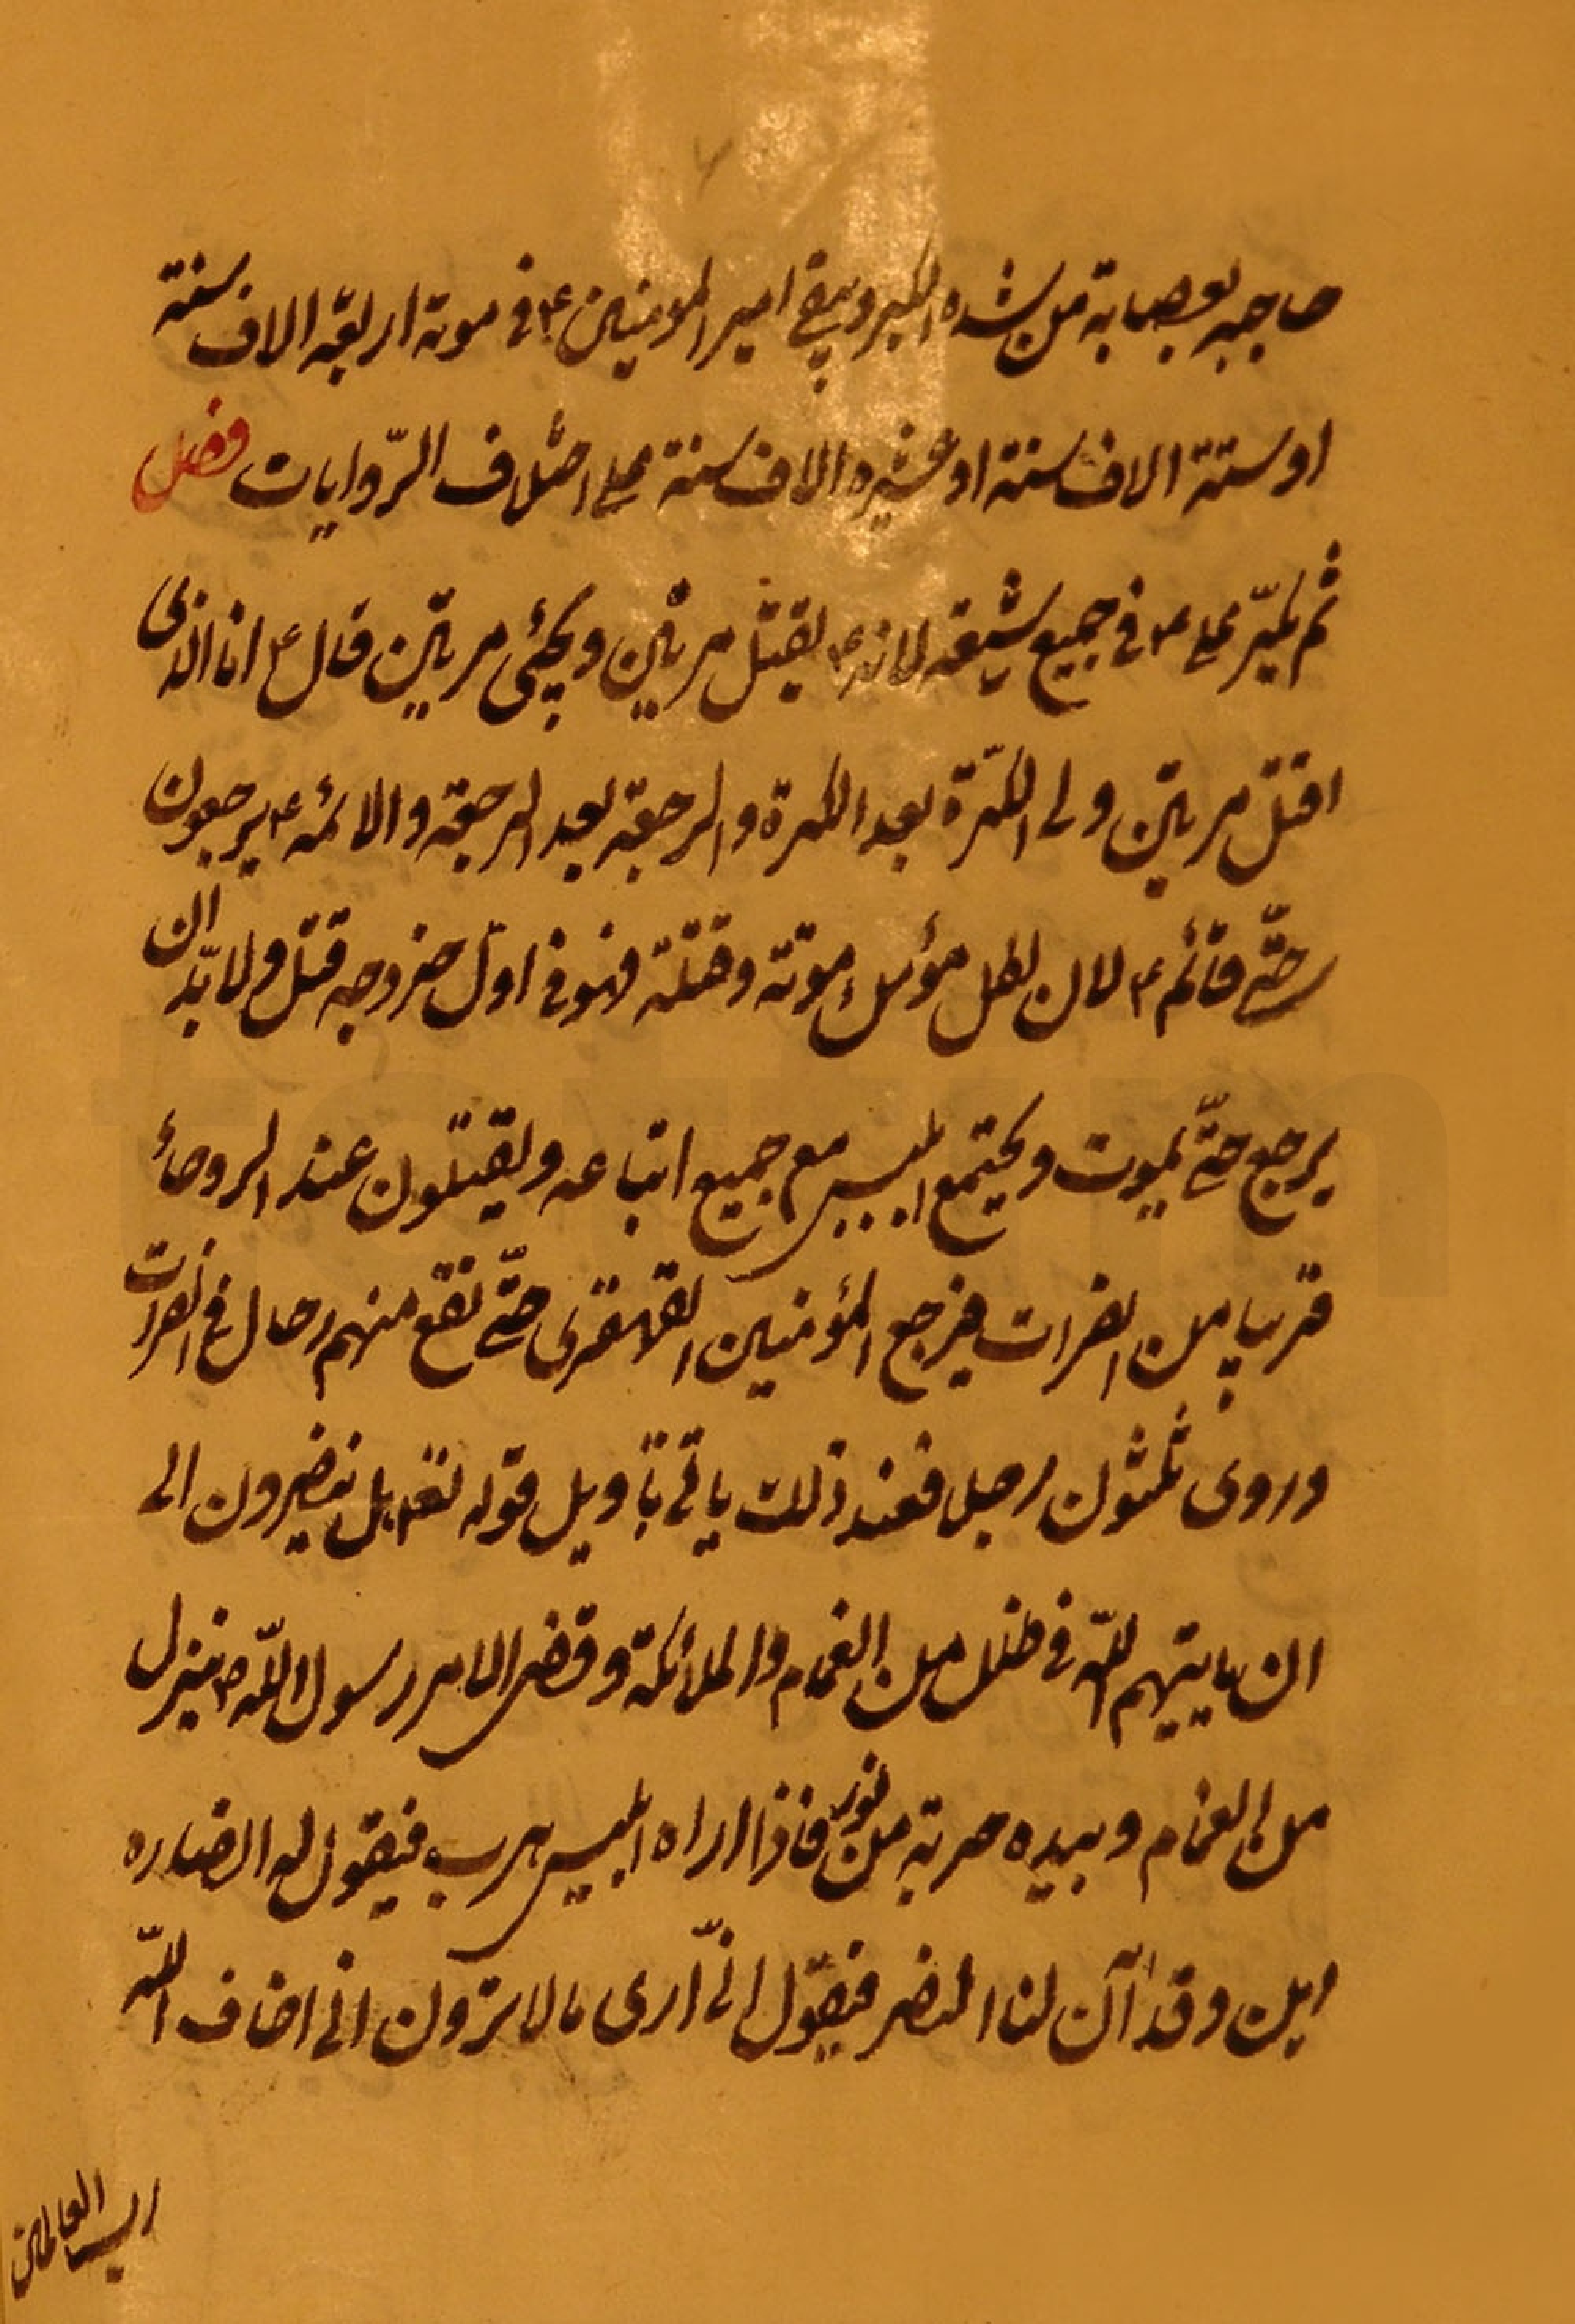 حاجبه بعصابة من شده الكبر ويبقي امير المومنين ع في موته اربعة الاف سنة
او ستة الاف سنة او عشره الاف سنة علي اختلاف الرّوايات فصل
ثم يكرّ علي ع في جميع شيعته لانه ع يقتل مرتين ويحئي مرتين قال ع انا الذي
اقتل مرتين ولي الكرّة بعد الكرة والرجعة بعد الرجعة والائمه ع يرجعون
حتّي قائم ع لان لكل مؤمن موتة وقتلة فهو في اوّل خروجه قتل ولا بدّ ان
يرجع حتّي يموت ويجتمع ابليس مع جميع اتباعه ويقتلون عند الروحاء
قريبا من الفرات فيرجع المؤمنين القهقري حتّي تقع منهم رجال في الفرات
وروي ثلثون رجل فعند ذلك ياتي تأويل قوله تعالي هل ينضرون الي
ان ياتيهم اللّه في ظلل من الغمام والملائكة وقضي الامر رسول اللّه ص ينزل
من الغمام وبيده حربة من نور فاذا اراه ابليس هرب فيقول له انصاره
اين وقد آن لنا النصر فيقول انّي اري ما لا ترون اني اخاف اللّه
رب العالمين